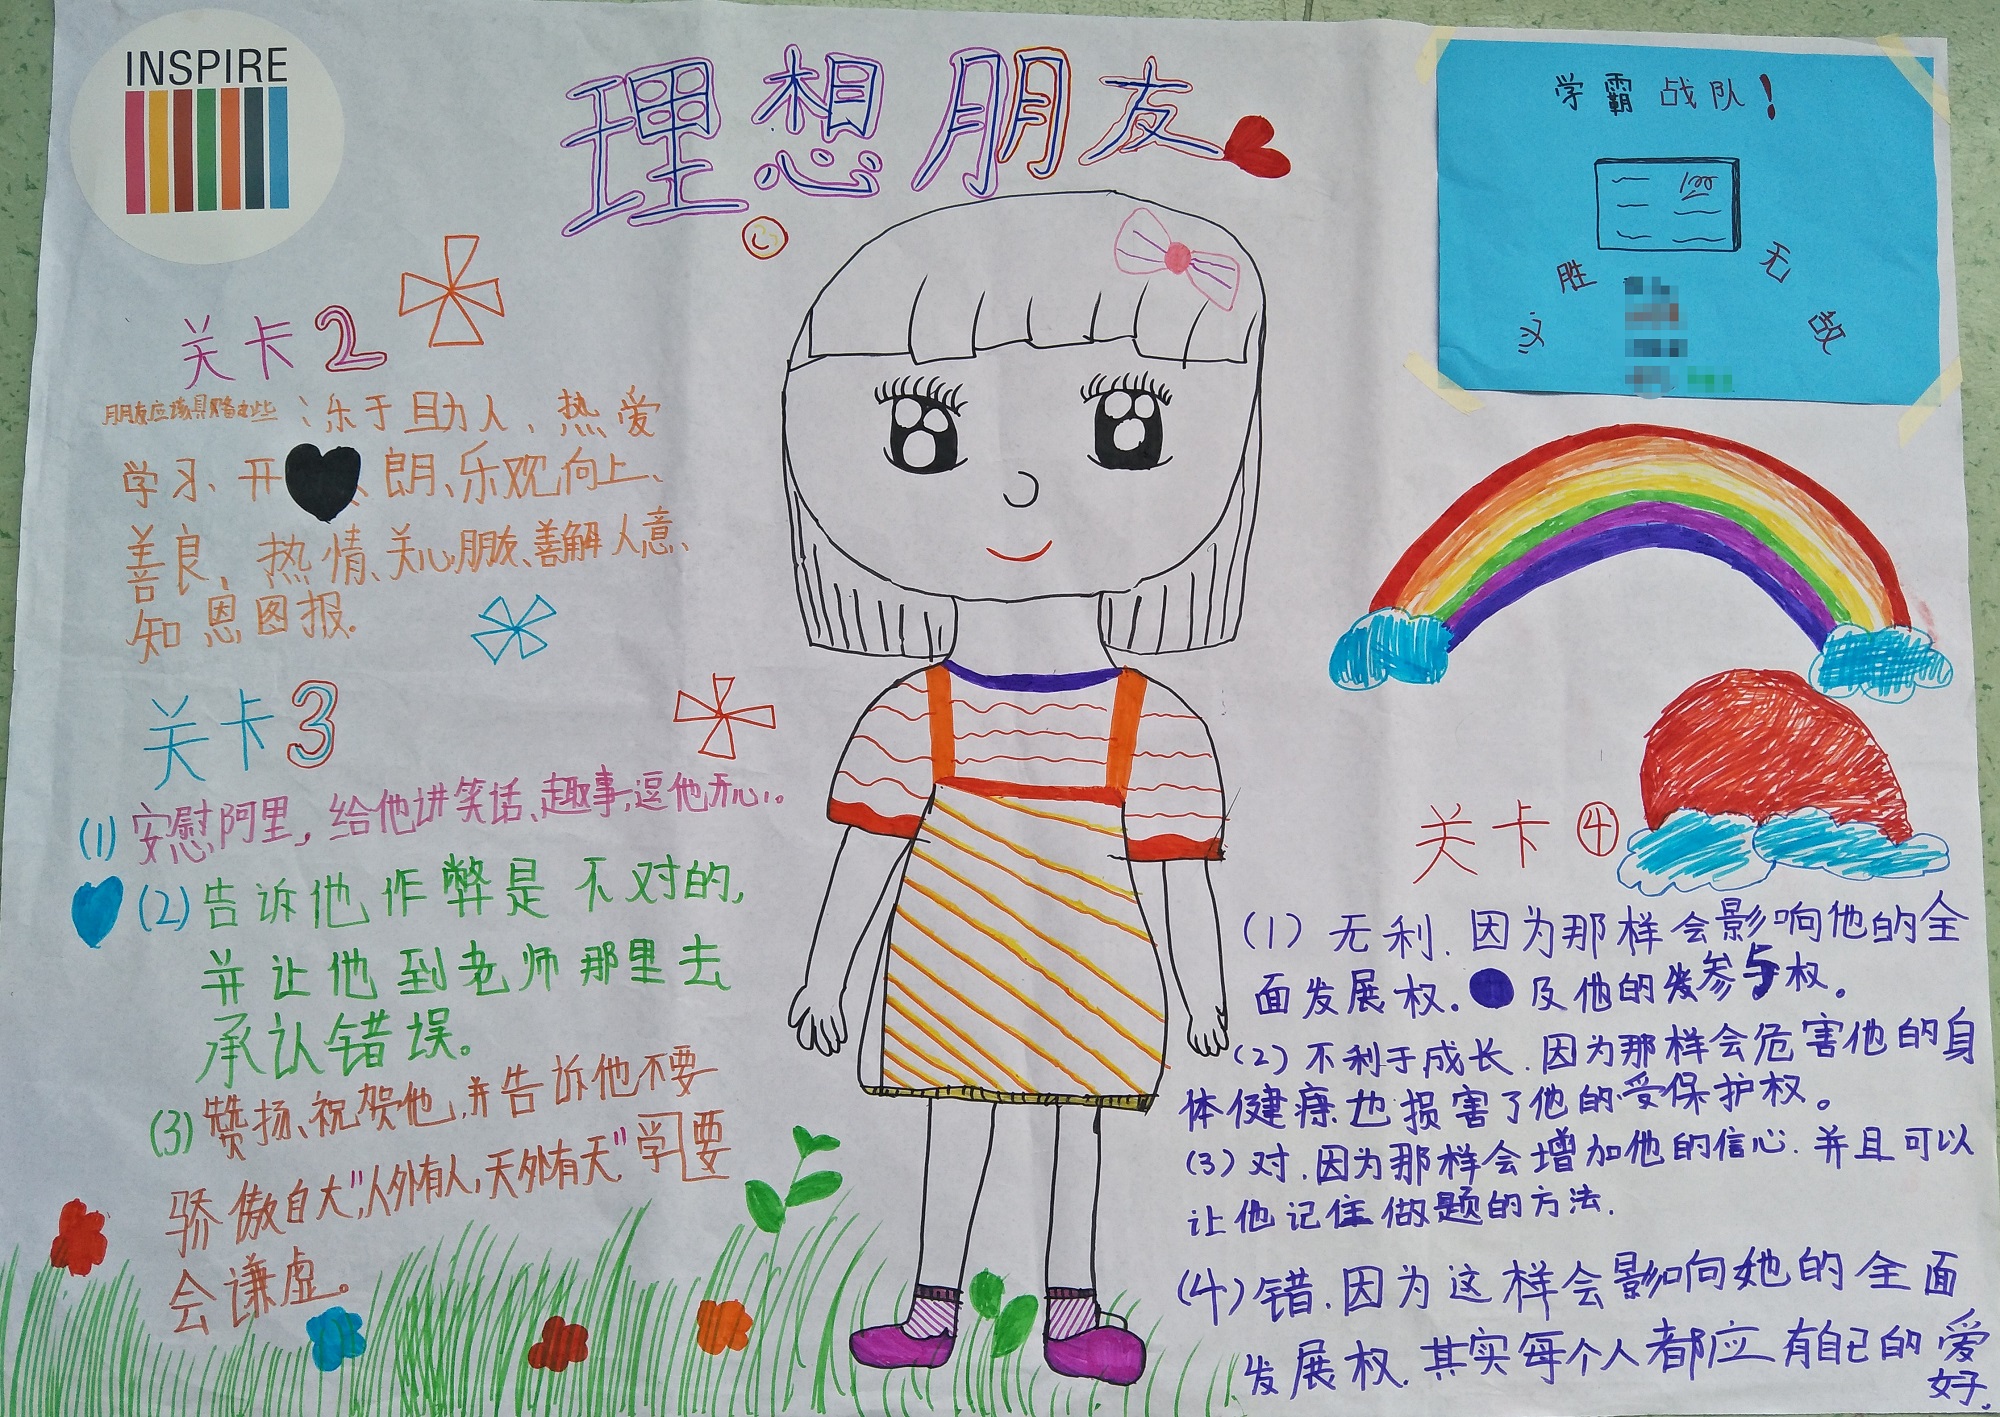 INSPIRE
理想朋友
学霸战队!
100
战胜无敌
关卡2
朋友应该具备这些:乐于助人、热爱
学习、开朗、乐观向上、
善良、热情、关心朋友、善解人意、
知恩图报.
关卡3
(1)安慰阿里,给他讲笑话、趣事,逗他开心。
(2)告诉他作弊是不对的,
并让他到老师那里去
承认错误。
(3)赞扬、祝贺他,并告诉他不要
骄傲自大,"人外有人,天外有天"学要
会谦虚。
关卡④
(1)无利.因为那样会影响他的全
面发展权。及他的参与权。
(2)不利于成长.因为那样会危害他的身
体健康也损害了他的受保护权。
(3)对.因为那样会增加他的信心.并且可以
让他记住做题的方法.
(4)错.因为这样会影响她的全面
发展权.其实每个人都应有自己的爱
好.